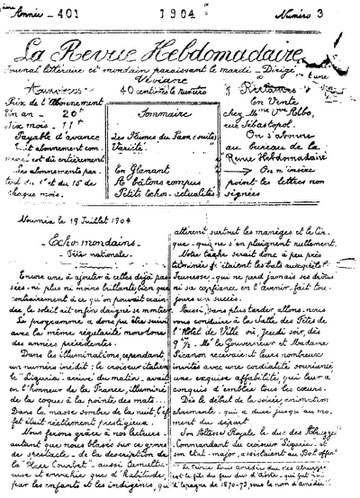 Année - 401
1904
Numéro 3
La Revue Hebdomadaire
Journal littéraire et mondain paraissant le mardi - Dirigé
Viviane
40 centimes le Numéro
Prix de l'Abonnement
Un an - 20f
Six mois - 11f
Payable d'avance
tout abonnement com-
mencé est dû entièrement
Les abonnements par-
tent du 1er et du 15 de
chaque mois.
Sommaire
Les Plumes du Paon (suite)
Variété
En Glanant
A bâtons rompus
Petits échos - actualités
Rédaction
En Vente
chez
rue Sébastopol
On s'abonne
au bureau de la
Revue Hebdomadaire
On n'insère
point les lettres non
signées
Nouméa le 19 Juillet 1904
Echos mondains.
Fête nationale.
Encore une à ajouter à celles déjà pas-
sées: ni plus ni moins brillante bien que
contrairement à ce qu'on pouvait crain-
dre le soleil ait enfin daigné se montrer.
Le programme a donc pu être suivi
avec la même régularité monotone
des années précédentes.
Dans les illuminations, cependant,
un numéro inédit: le croiseur italien
le "Liguria" arrivé du matin, avait
en l'honneur de la France, illuminé
de la coque à la pointe des mâts.
Dans la masse sombre de la nuit, l'ef-
fet était réellement prestigieux.
Nous ferons grâce à nos lecteurs
autant que nous blasés sur ce genre
de spectacle - de la description de
la Place Courbet" aussi tumultu-
euse et envahie que d'habitude,
par les enfants et les indigènes qui
attirent surtout les manèges et le Cir-
que - qui ne s'en plaignent nullement.
Notre tâche serait donc à peu près
terminée si étaient les bals auxquels la
Jeunesse - qui ne perd jamais ses droits
ni sa confiance en l'avenir, fait tou-
jours un succès.
Aussi, sans plus tarder, allons-nous
vous conduire à la Salle des Fêtes de
l'Hôtel de Ville où, Jeudi soir, dès
9h ½, Mr le Gouverneur et Madame
Picanon recevaient leurs nombreux
invités avec une cordialité souriante
une exquise affabilité, qui leur a
conquis d'emblée tous les cœurs.
Dès le début de la soirée, animation
charmante, qui a duré jusqu'au mo-
ment du départ.
Son Altesse Royale, le duc des Abruzzes
Commandant du croiseur "Liguria" et
son Etat-major, assistaient au Bal offert
est le fils du feu duc d'Aoste, qui fut roi
d'Espagne de 1870-73, sous le nom d'Amédée